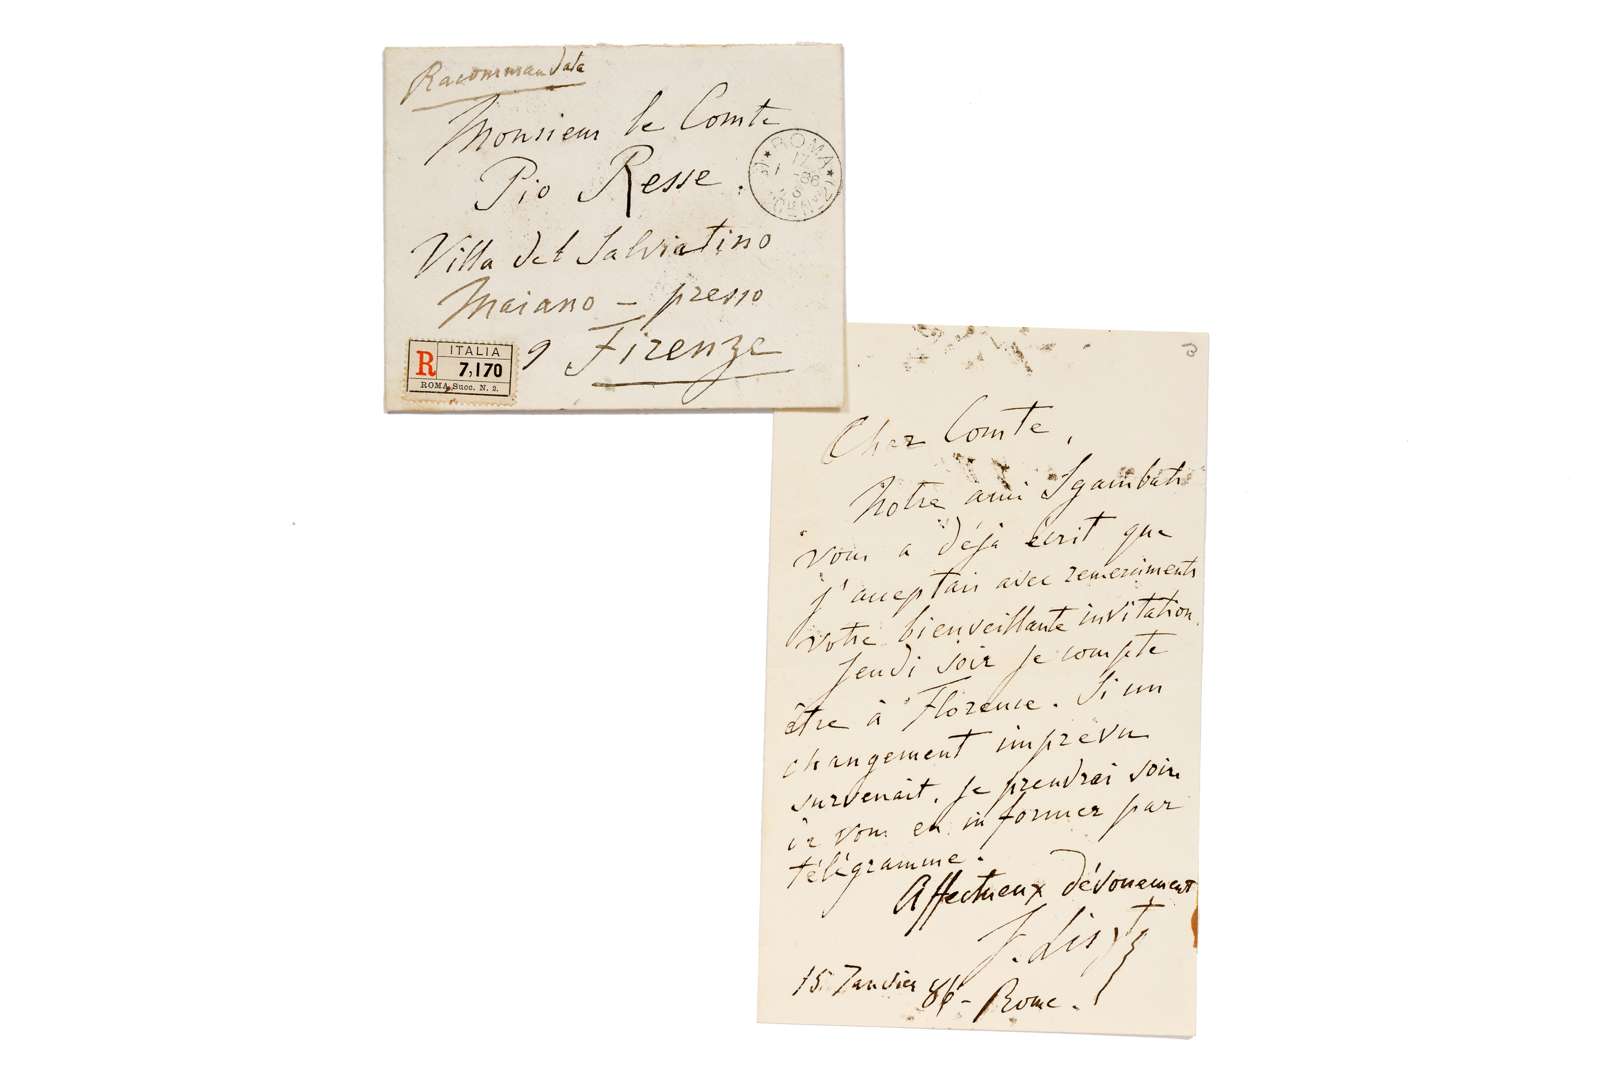 Racommandata
Monsieur le Comte
Pio Resse.
Villa del Salviatino
Maiano – presso
9 Firenze
ROMA
17
1 - 86
R ITALIA
7,170
ROMA Succ. N. 2.
Cher Comte,
Notre ami Sgambati
vous a déjà écrit que
j'acceptais avec remerciments
votre bienveillante invitation.
Jeudi soir je compte
être à Florence. Si un
changement imprévu
survenait, je prendrai soin
de vous en informer par
télégramme.
Affectueux dévouement
F. Liszt
15 Janvier 86 – Rome.